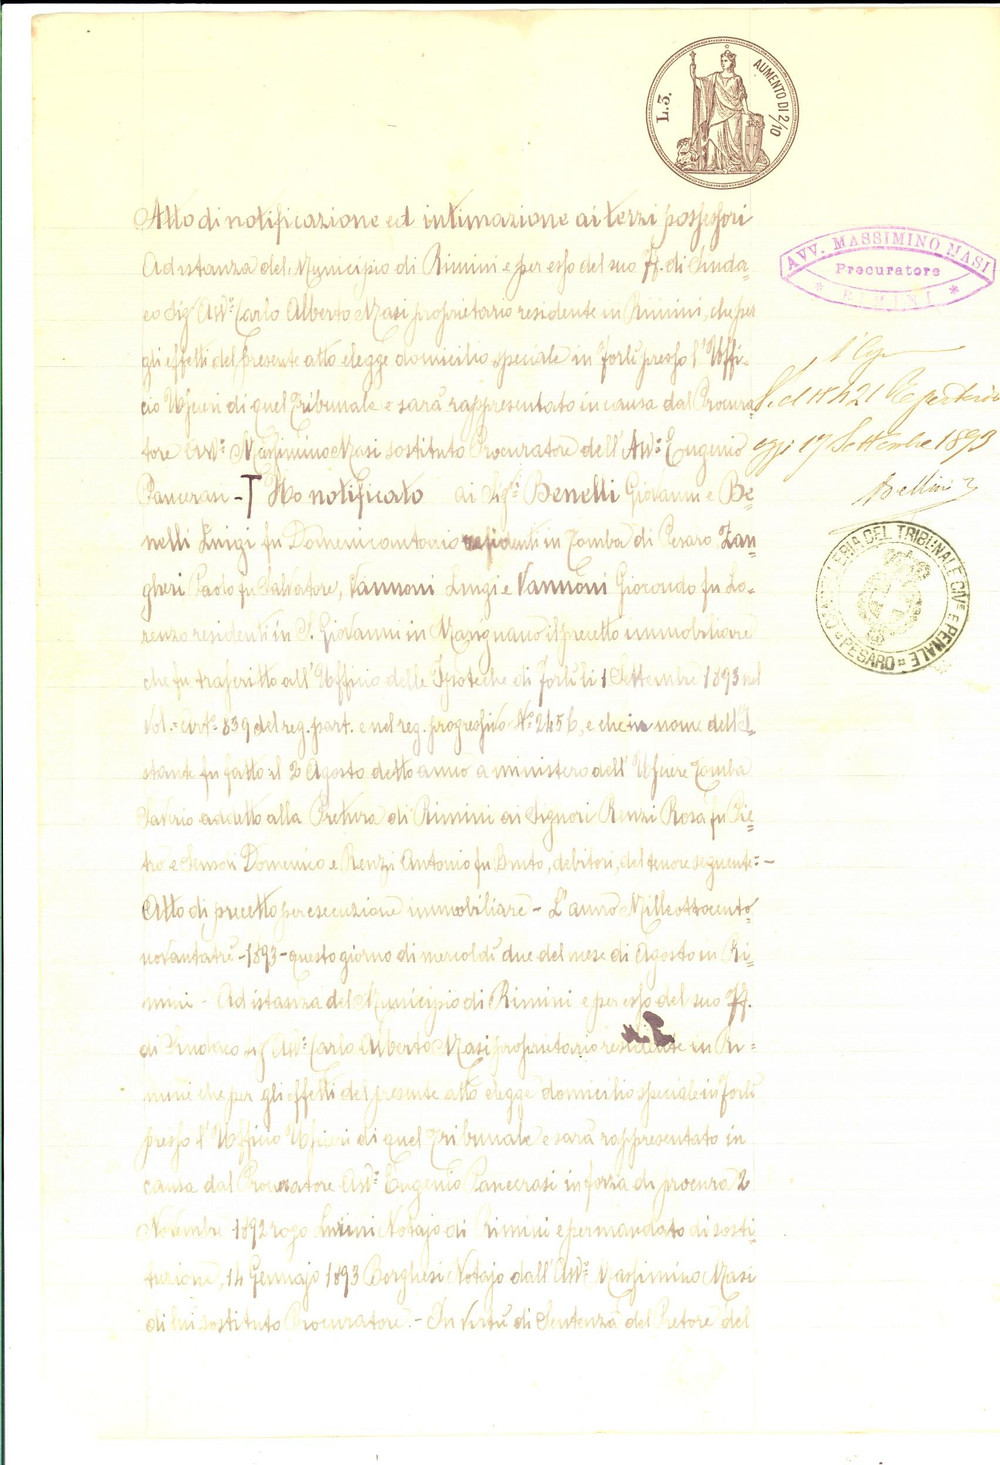 L. 3.
AUMENTO DI 2/10
Atto di notificazione ed intimazione ai terzi possessori
Ad istanza del Municipio di Rimini e per esso del suo ff. di Sinda=
co Sigr Avvo Carlo Alberto Masi proprietario residente in Rimini, che per
gli effetti del presente atto elegge domicilio speciale in Forlì presso l'Uffi=
cio Uscieri di quel Tribunale e sarà rappresentato in causa dal Procura=
tore Avvo Massimino Masi sostituto Procuratore dell'Avvo Eugenio
Pancrasi - Ho notificato ai Sigri Benelli Giovanni e Be=
nelli Luigi fu Domenicantonio residenti in Tomba di Pesaro Zan=
gheri Paolo fu Salvatore, Vannoni Luigi e Vannoni Giocondo fu Lo=
renzo residenti in S. Giovanni in Marignano il precetto immobiliare
che fu trascritto all'Ufficio delle Ipoteche di Forlì li 1 Settembre 1893 nel
Vol.= Arto 839 del reg. part. e nel reg. progressivo No 2456, e che in nome dell'I=
stante fu fatto il 2 Agosto detto anno a ministero dell'Usciere Tomba
Saverio addetto alla Pretura di Rimini ai Signori Renzi Rosa fu Pie=
tro e Domenico e Renzi Antonio fu debitori, del tenore seguente=-
Atto di precetto per esecuzione immobiliare - L'anno Milleottocento
novantatre -1893- questo giorno di mercoldì due del mese di Agosto in Ri=
mini - Ad istanza del Municipio di Rimini e per esso del suo ff.
di Sindaco Sigr Avvo Carlo Alberto Masi proprietario residente in Ri=
mini che per gli effetti del presente atto elegge domicilio speciale in Forlì
presso l'Ufficio Uscieri di quel Tribunale e sarà rappresentato in
causa dal Procuratore Avvo Eugenio Pancrasi in forza di procura 2
Novembre 1892 rogo Notajo di Rimini e per mandato di sosti=
tuzione, 14 Gennajo 1893 Borghesi Notajo dall'Avvo Massimino Masi
di lui sostituto Procuratore.- In virtù di Sentenza del Pretore del
AVV. MASSIMINO MASI
Procuratore
* RIMINI *
oggi 17 Settembre 1893
Bellini
CANCELLERIA DEL TRIBUNALE CIV.E E PENALE
PESARO